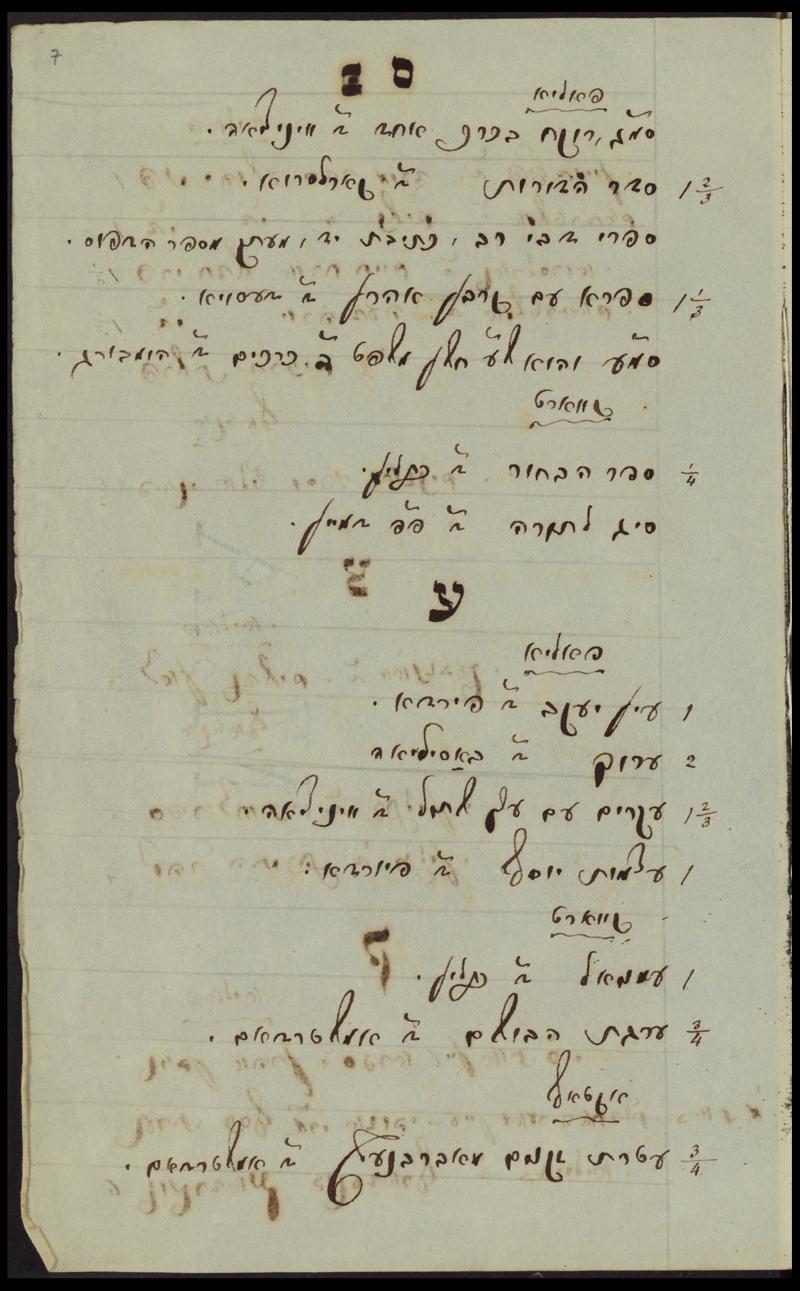 7
ס
פאליא
סמ"ג, רוקח בכרך אחד ד' וויניציאה.
1 2/3 סדר הדורות ד' קארלסרוא.
ספרי דבי רב, כתיבת יד, מעתק מספר הדפוס.
1 1/3 ספרא עם קרבן אהרן ד' דעסויא.
סמ"ע והוא ח"מ חלק משפט ב' כרכים ד' המבורג.
קווארט
1/4 ספר הבחור ד' ברלין.
סיג לתורה ד' פפ"ד מיין.
ע
פאליא
1 עין יעקב ד' פירדא.
2 ערוך ד' באסיליאה
1 2/3 עקרים עם עץ שתול ד' וויניציאה.
1 עצמות יוסף ד' פיורדא.
קווארט
1 עממאל ד' ברלין.
3/4 ערגת הבושם ד' אמשטרדאם.
אקטאף
3/4 עטרת זקנים מאברבנעל ד' אמשטרדאם.